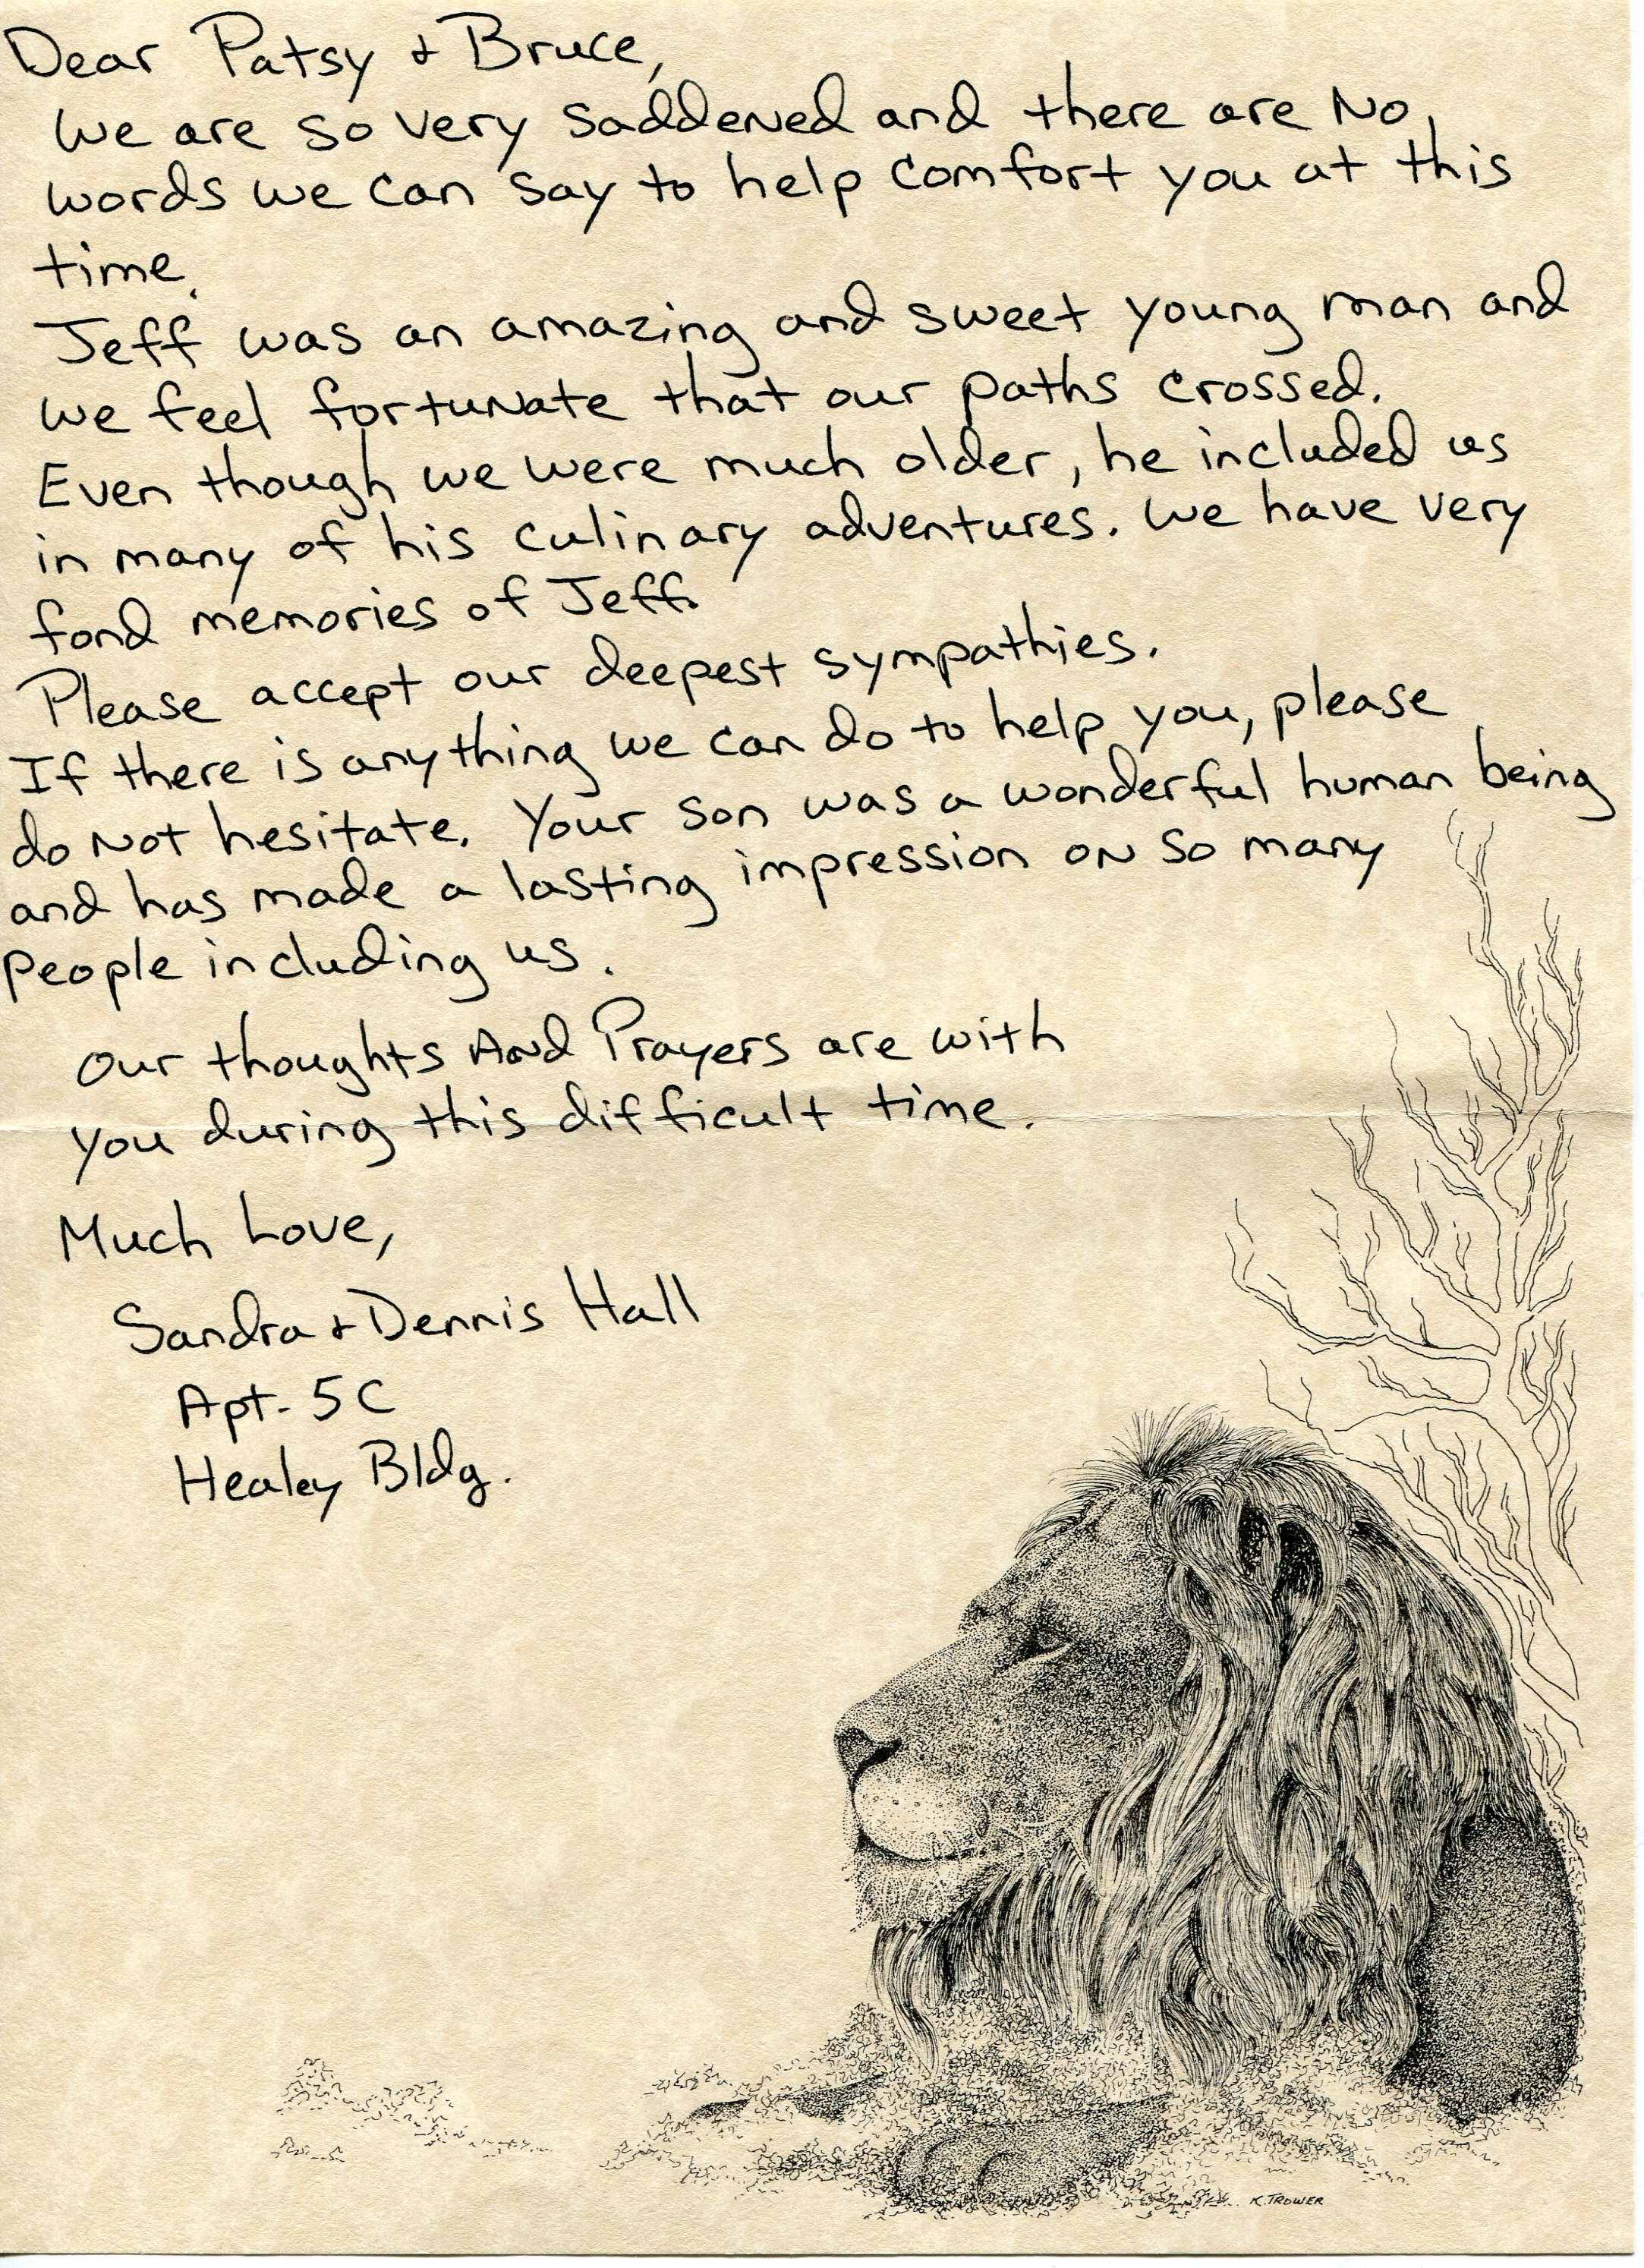 Dear Patsy + Bruce,
We are so very saddened and there are No
words we can say to help comfort you at this
time.
Jeff was an amazing and sweet young man and
we feel fortunate that our paths crossed.
Even though we were much older, he included us
in many of his culinary adventures. We have very
fond memories of Jeff.
Please accept our deepest sympathies.
If there is anything we can do to help you, please
do Not hesitate. Your son was a wonderful human being
and has made a lasting impression on so many
people including us.
Our thoughts And Prayers are with
you during this difficult time.
Much Love,
Sandra + Dennis Hall
Apt. 5C
Healey Bldg.
K. TROWER